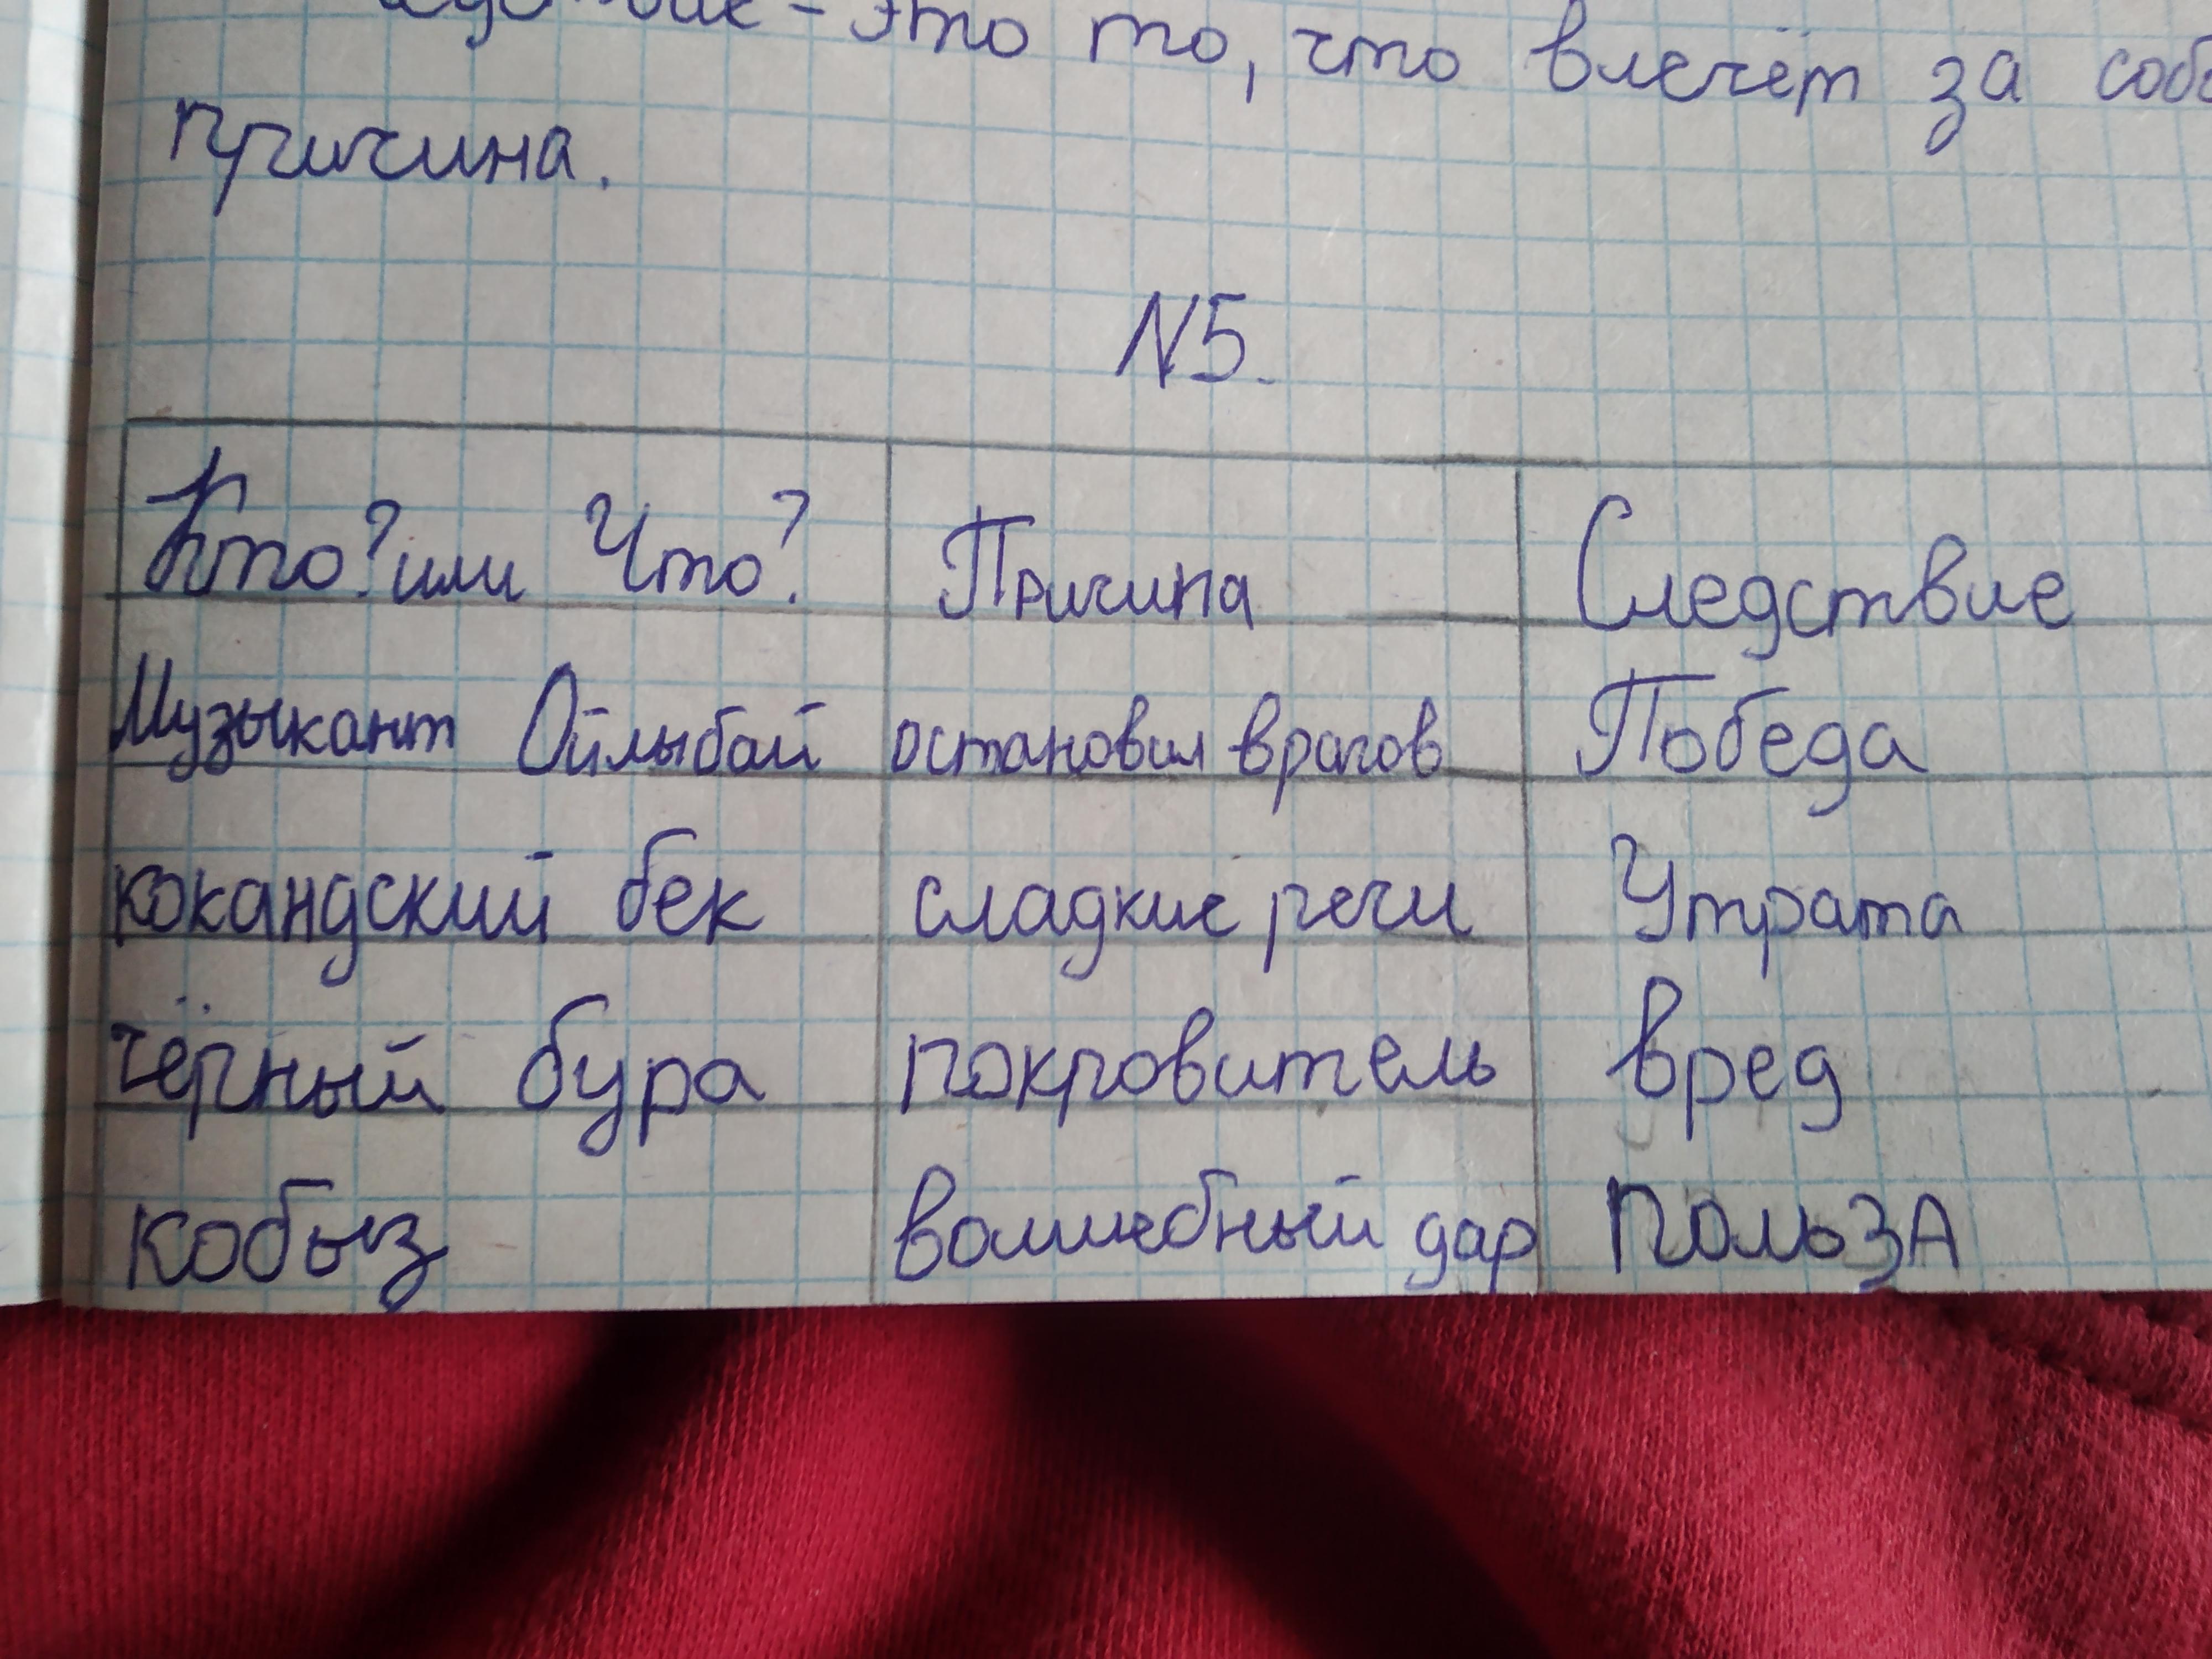 - это то, что влечёт за
причина.
N5.
Кто? или Что? Причина Следствие
Музыкант Ойлыбай остановил врагов Победа
кокандский бек сладкие речи Утрата
чёрный бура покровитель вред
кобыз волшебный дар польза